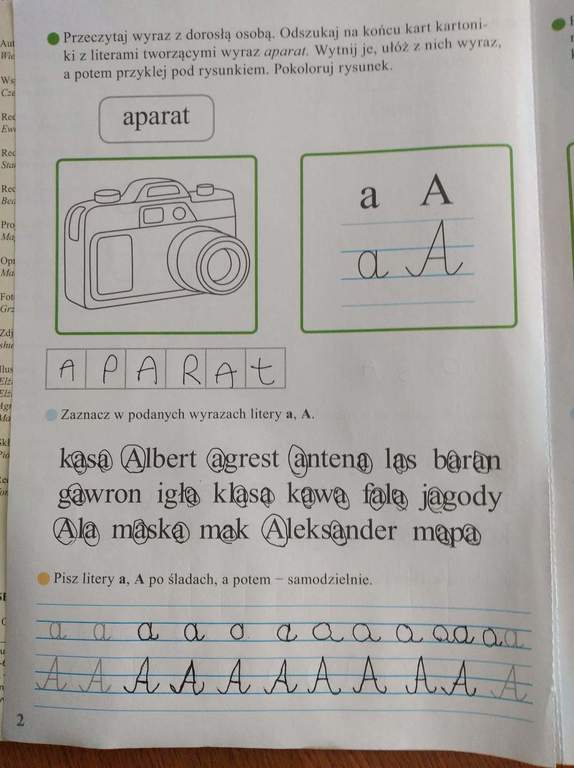 Przeczytaj wyraz z dorosłą osobą. Odszukaj na końcu kart kartoni-
ki z literami tworzącymi wyraz aparat. Wytnij je, ułóż z nich wyraz,
a potem przyklej pod rysunkiem. Pokoloruj rysunek.
aparat
a A
a A
A P A R A t
Zaznacz w podanych wyrazach litery a, A.
kasa Albert agrest antena las baran
gawron igła klasa kawa fala jagody
Ala maska mak Aleksander mapa
Pisz litery a, A po śladach, a potem – samodzielnie.
a a a a a a a a a a a a a
A A A A A A A A A A A
2